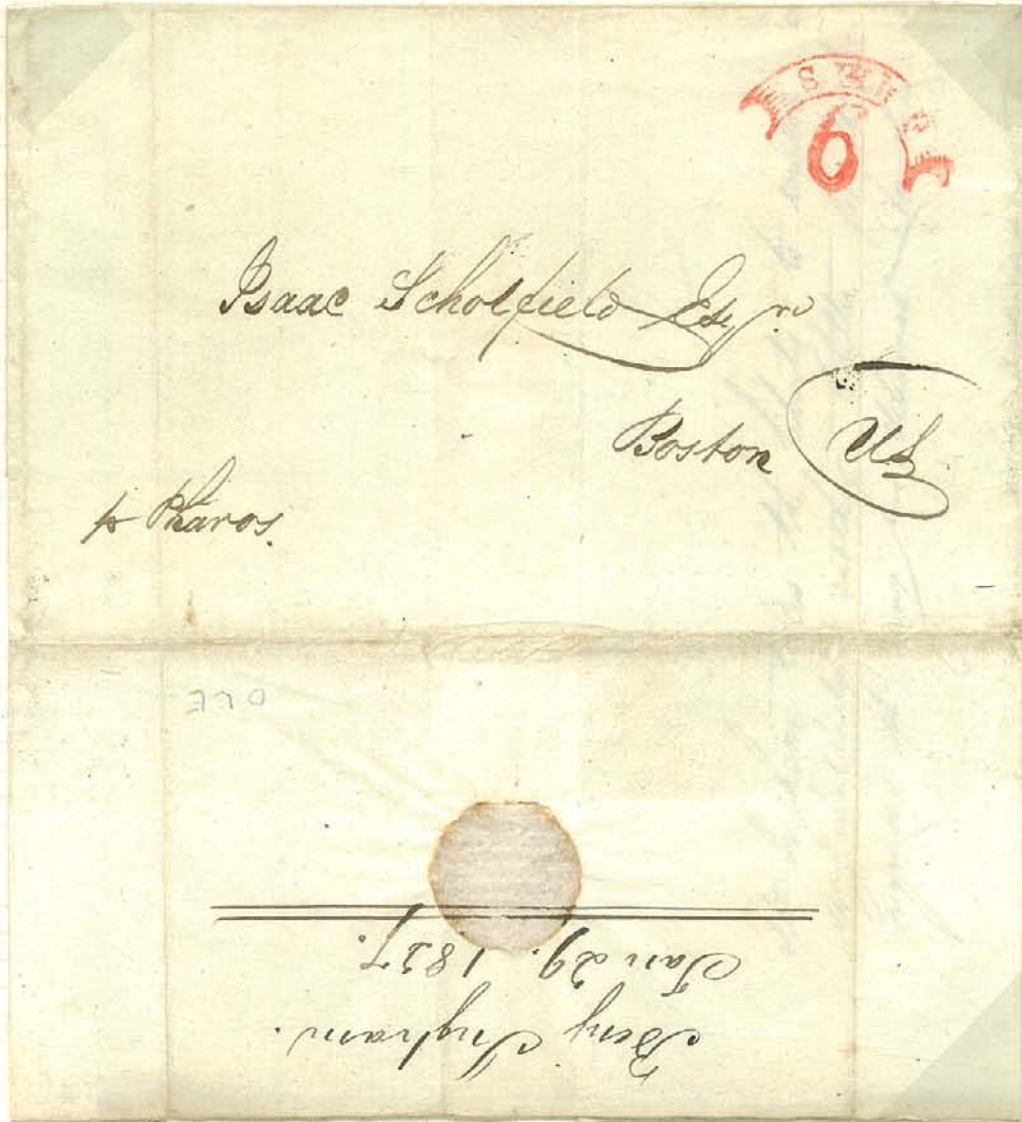 SHIP
6
Isaac Scholfield Esqre
Boston US
pr Pharos.
Benj Ingham.
Jan 29. 1827.